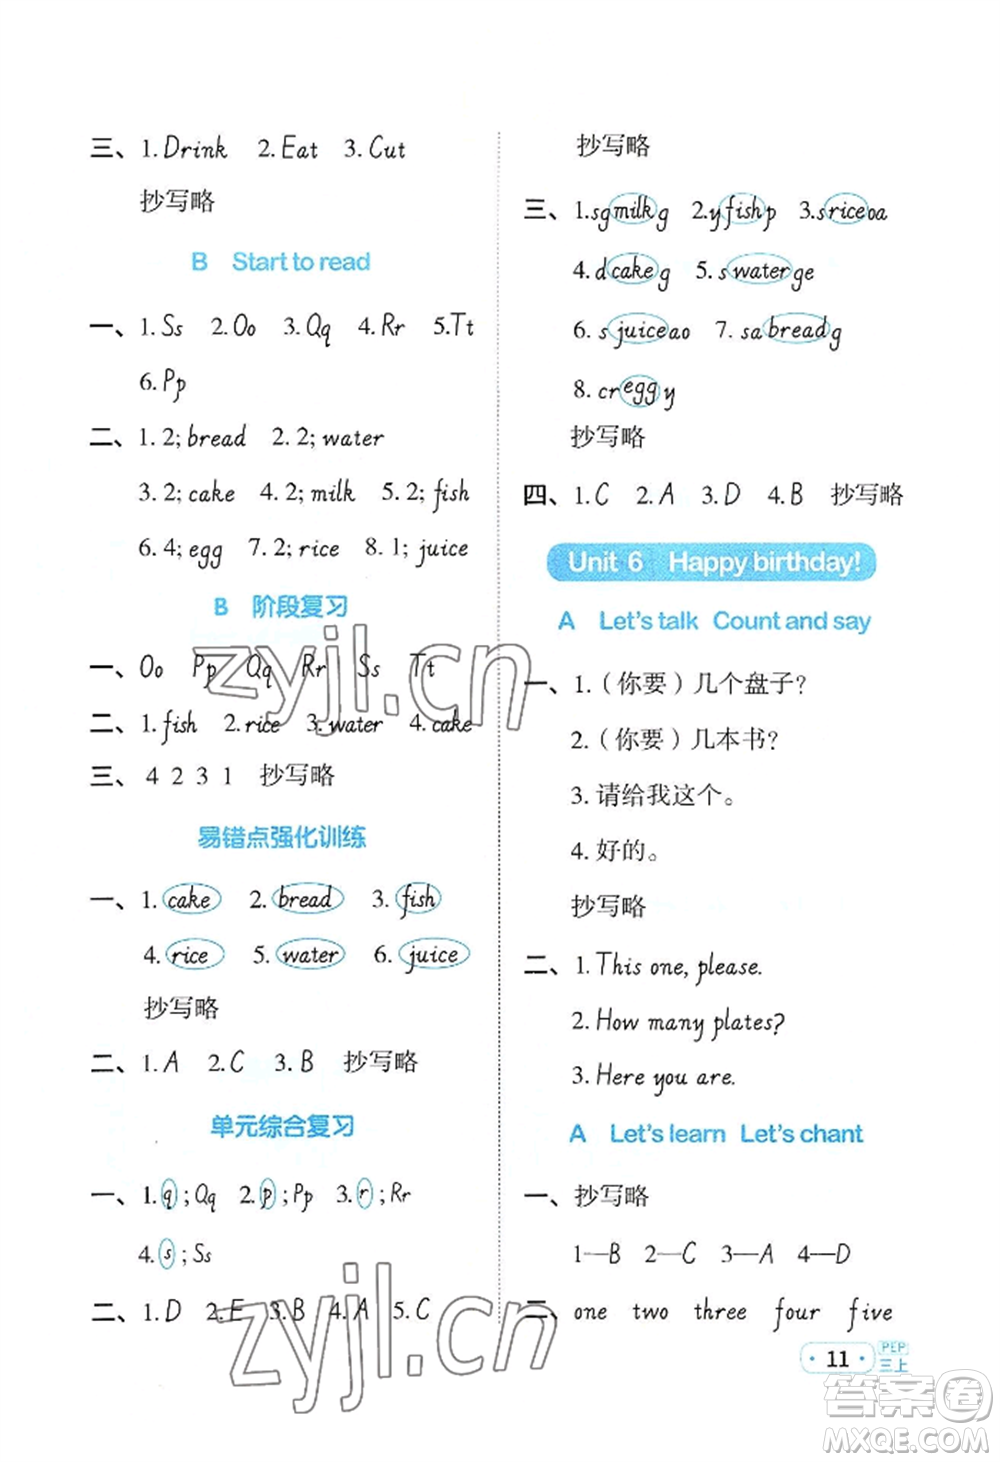 三、1.Drink 2.Eat 3.Cut
抄写略
B Start to read
一、1.Ss 2.Oo 3.Qq 4.Rr 5.Tt
6.Pp
二、1.2;bread 2.2;water
3.2;cake 4.2;milk 5.2;fish
6.4;egg 7.2;rice 8.1;juice
B 阶段复习
一、Oo Pp Qq Rr Ss Tt
二、1.fish 2.rice 3.water 4.cake
三、4 2 3 1 抄写略
易错点强化训练
一、1.cake 2.bread 3.fish
4.rice 5.water 6.juice
抄写略
二、1.A 2.C 3.B 抄写略
单元综合复习
一、1.q;Qq 2.p;Pp 3.r;Rr
4.s;Ss
二、1.D 2.E 3.B 4.A 5.C
抄写略
三、1.sgmilkg 2.yfishp 3.sriceoa
4.dcakeg 5.swaterge
6.sjuiceao 7.sabreadg
8.creggy
抄写略
四、1.C 2.A 3.D 4.B 抄写略
Unit 6 Happy birthday!
A Let's talk Count and say
一、1.（你要）几个盘子？
2.（你要）几本书？
3.请给我这个。
4.好的。
抄写略
二、1.This one, please.
2.How many plates?
3.Here you are.
A Let's learn Let's chant
一、抄写略
1—B 2—C 3—A 4—D
二、one two three four five
·11· PEP
三上
zyjl.cn
zyjl.cn
答案卷
MXQE.COM